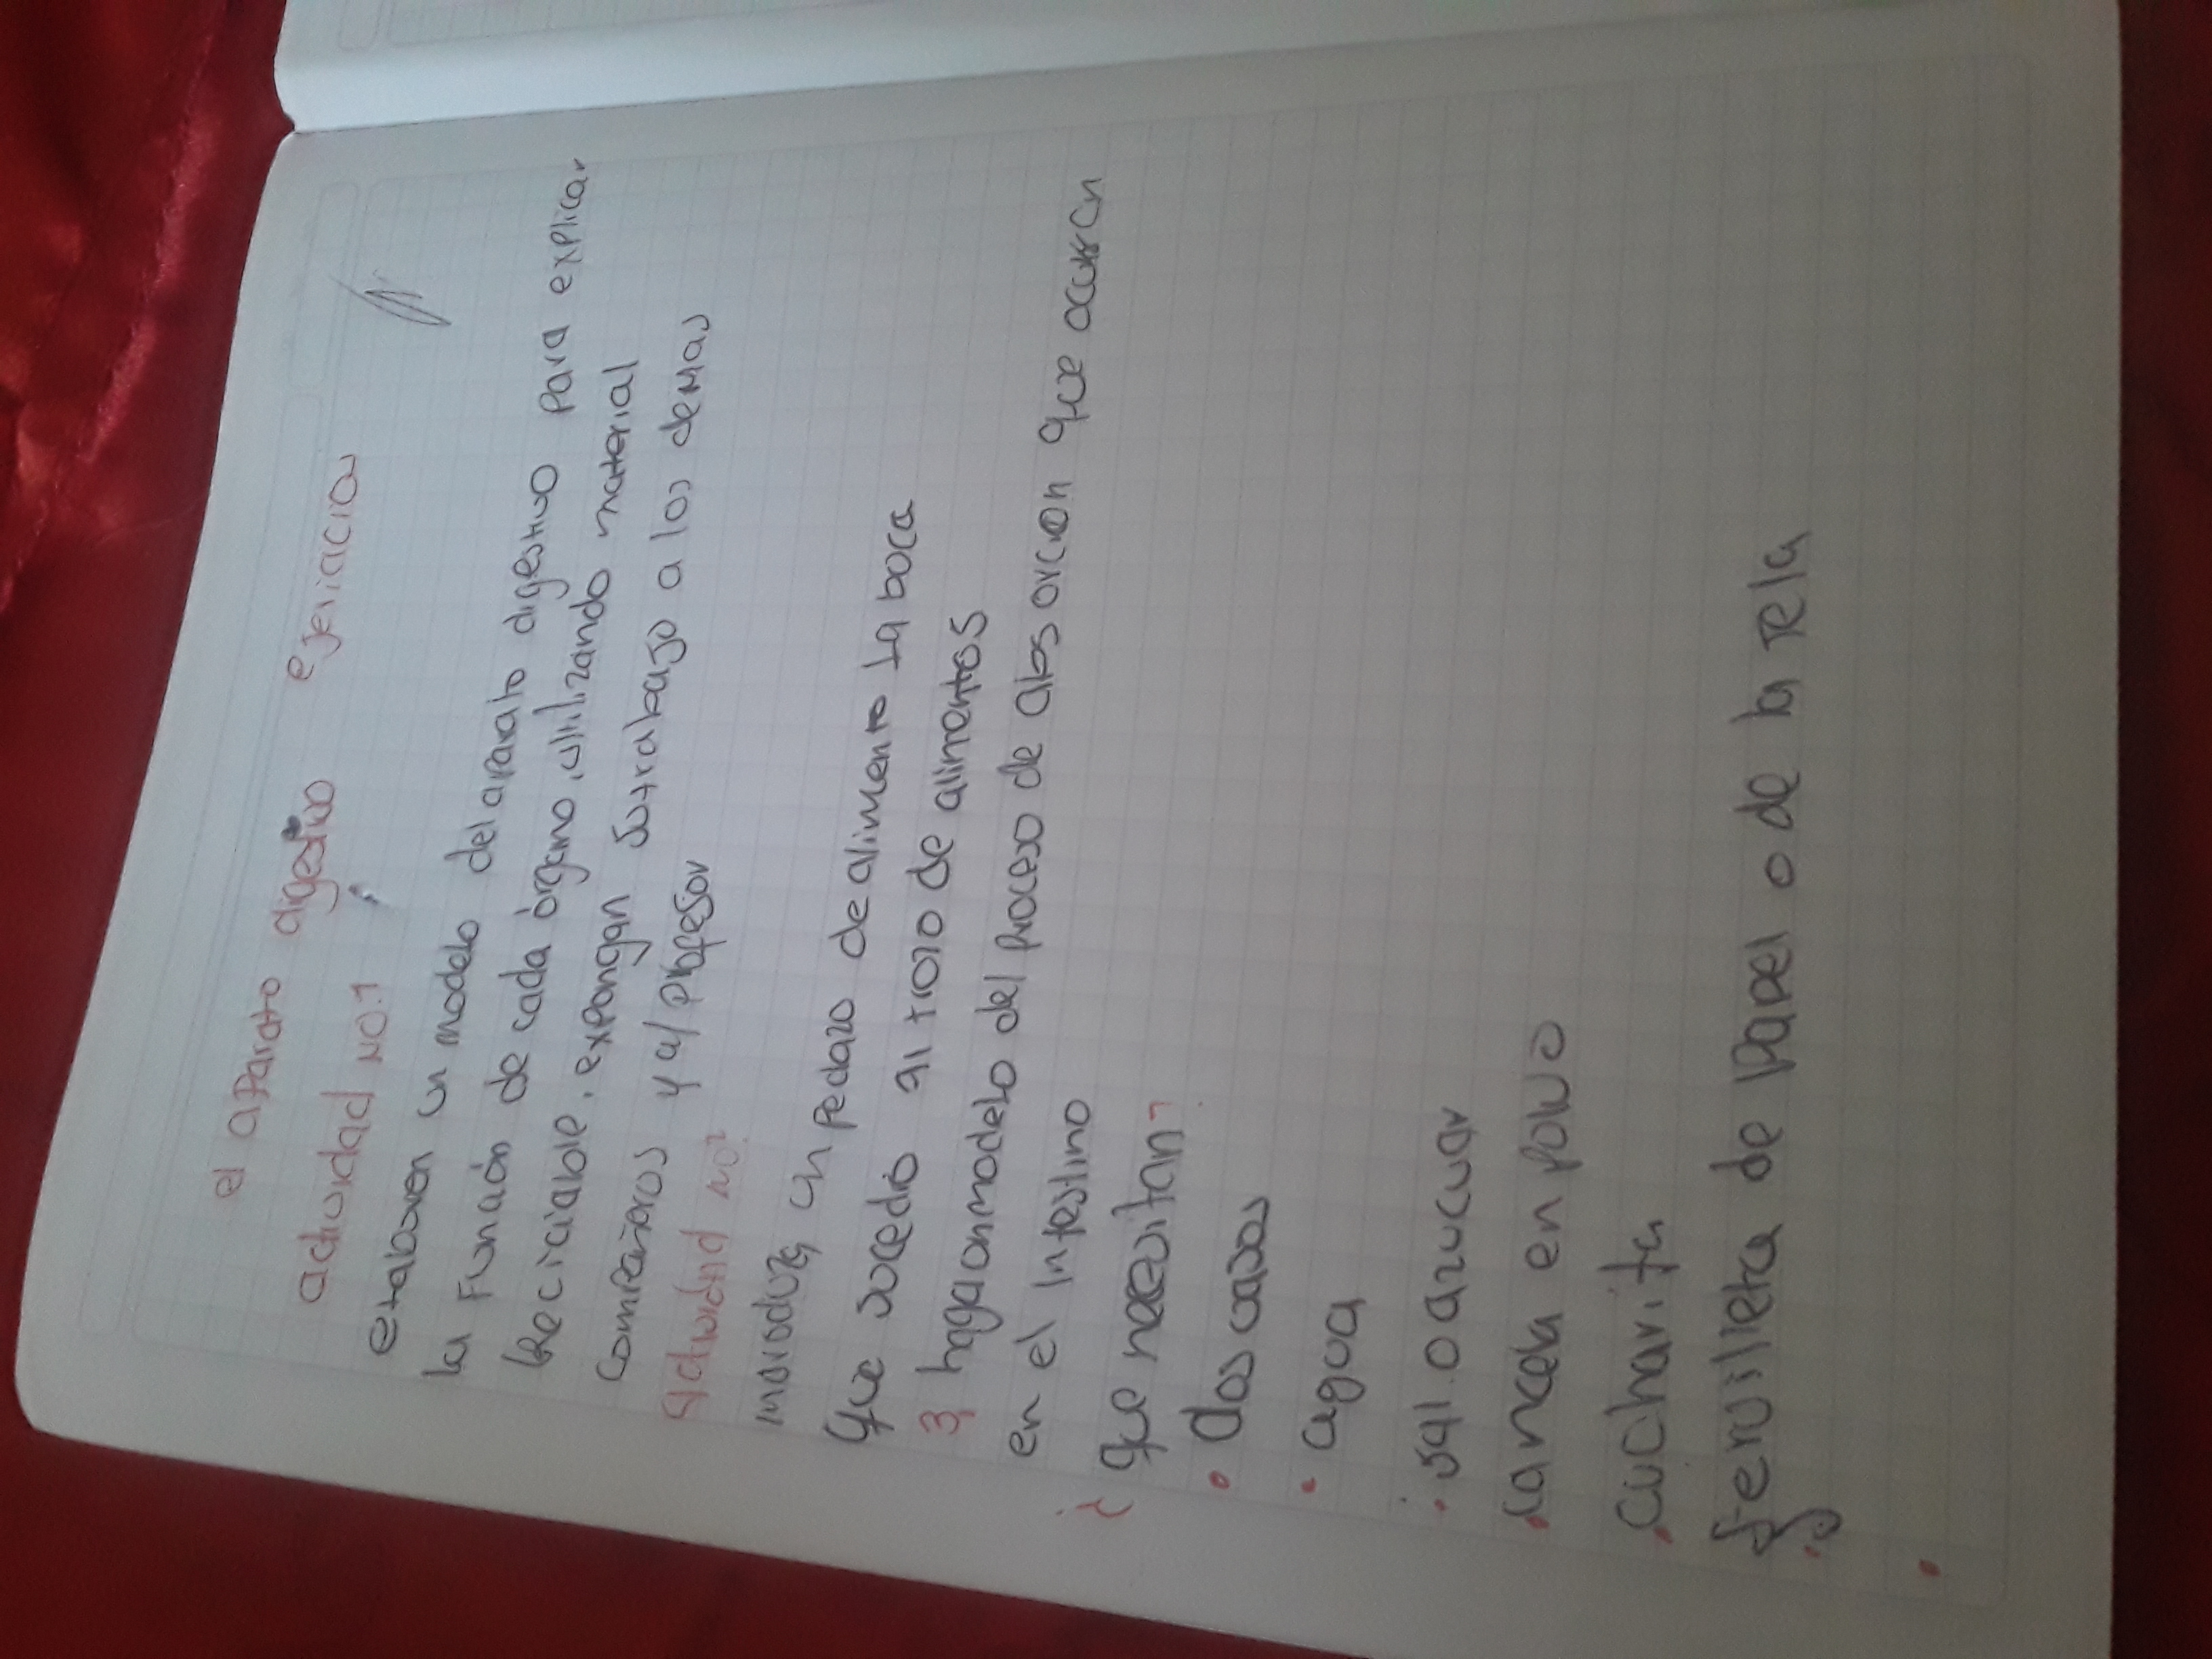 el aparato digestivo ejericios
actividad NO.1
etaboren un modelo del aparato digestivo para explicar
la Función de cada órgano, utilizando material
Reciciable, expongan su trabajo a los demas
compañeros y al profesor
actividad no2
introduzca un pedazo de alimento la boca
que sucedio al trozo de alimentos
3 hagan modelo del proceso de absorcion que ocurren
en el intestino
¿ que necesitan?
• dos casos
• agua
• sal o azucuar
• canela en polvo
• cucharita
• servilleta de papel o de la tela